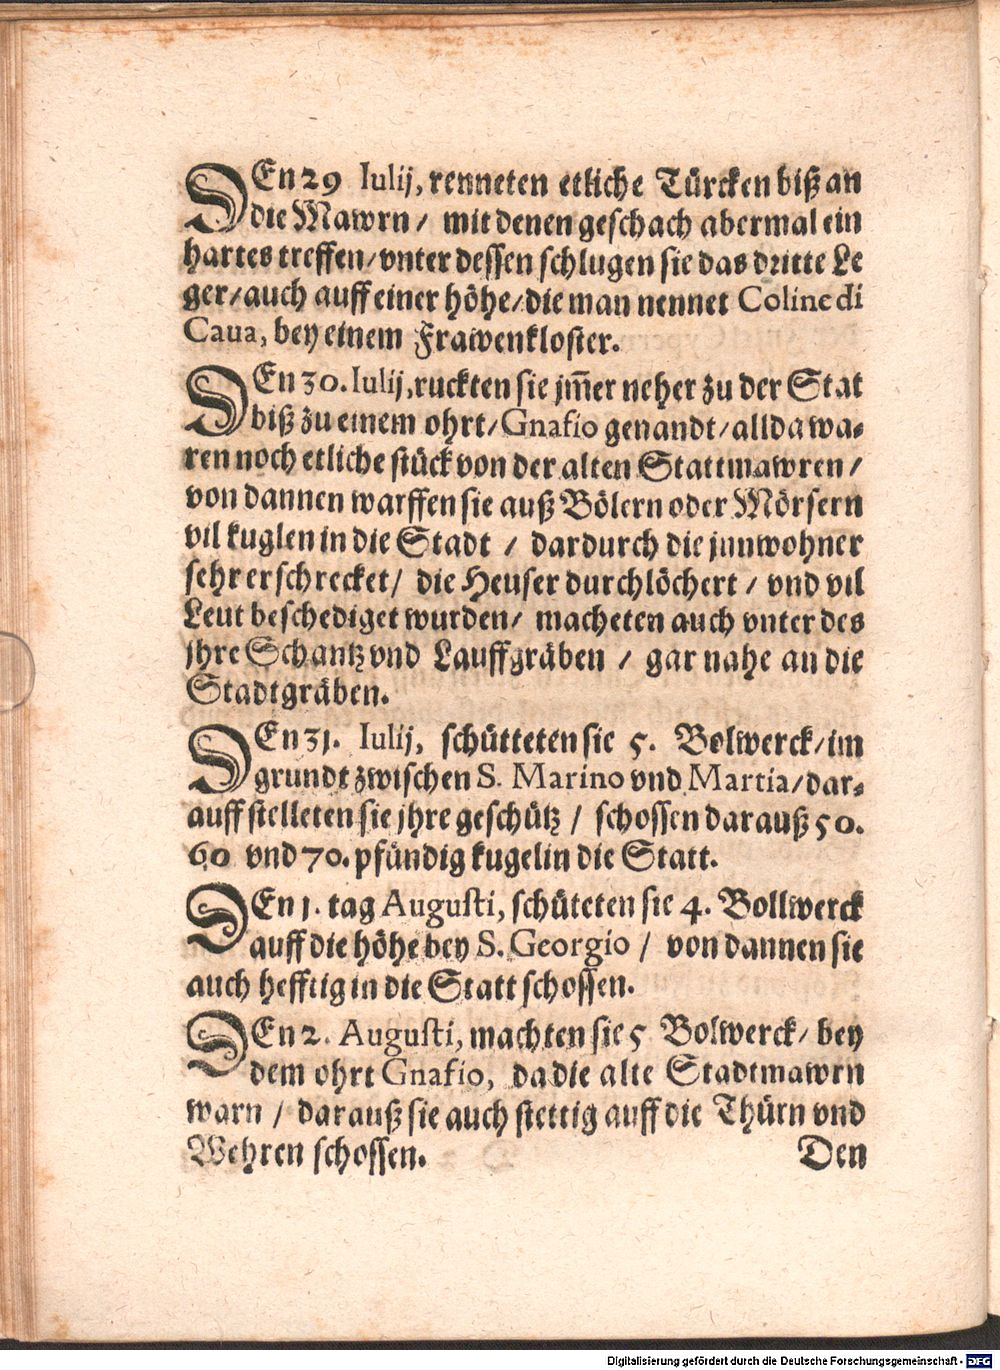 DEn 29 Iulij, renneten etliche Türcken biß an
die Mawrn / mit denen geschach abermal ein
hartes treffen / vnter dessen schlugen sie das dritte Le
ger / auch auff einer höhe / die man nennet Coline di
Caua, bey einem Frawenkloster.
DEn 30. Iulij, ruckten sie jm̃er neher zu der Stat
biß zu einem ohrt / Gnasio genandt / allda wa-
ren noch etliche stück von der alten Stattmawren /
von dannen warffen sie auß Bölern oder Mörsern
vil kuglen in die Stadt / dardurch die jnnwohner
sehr erschrecket / die Heuser durchlöchert / vnd vil
Leut beschediget wurden / macheten auch vnter des
jhre Schantz vnd Lauffgräben / gar nahe an die
Stadtgräben.
DEn 31. Iulij, schütteten sie 5. Bolwerck / im
grundt zwischen S. Marino vnd Martia / dar-
auff stelleten sie jhre geschütz / schossen darauß 50.
60 vnd 70. pfündig kugel in die Statt.
DEn 1. tag Augusti, schüteten sie 4. Bollwerck
auff die höhe bey S. Georgio / von dannen sie
auch hefftig in die Statt schossen.
DEn 2. Augusti, machten sie 5 Bolwerck / bey
dem ohrt Gnasio, da die alte Stadtmawrn
warn / darauß sie auch stettig auff die Thürn vnd
Wehren schossen. Den
Digitalisierung gefördert durch die Deutsche Forschungsgemeinschaft - DFG